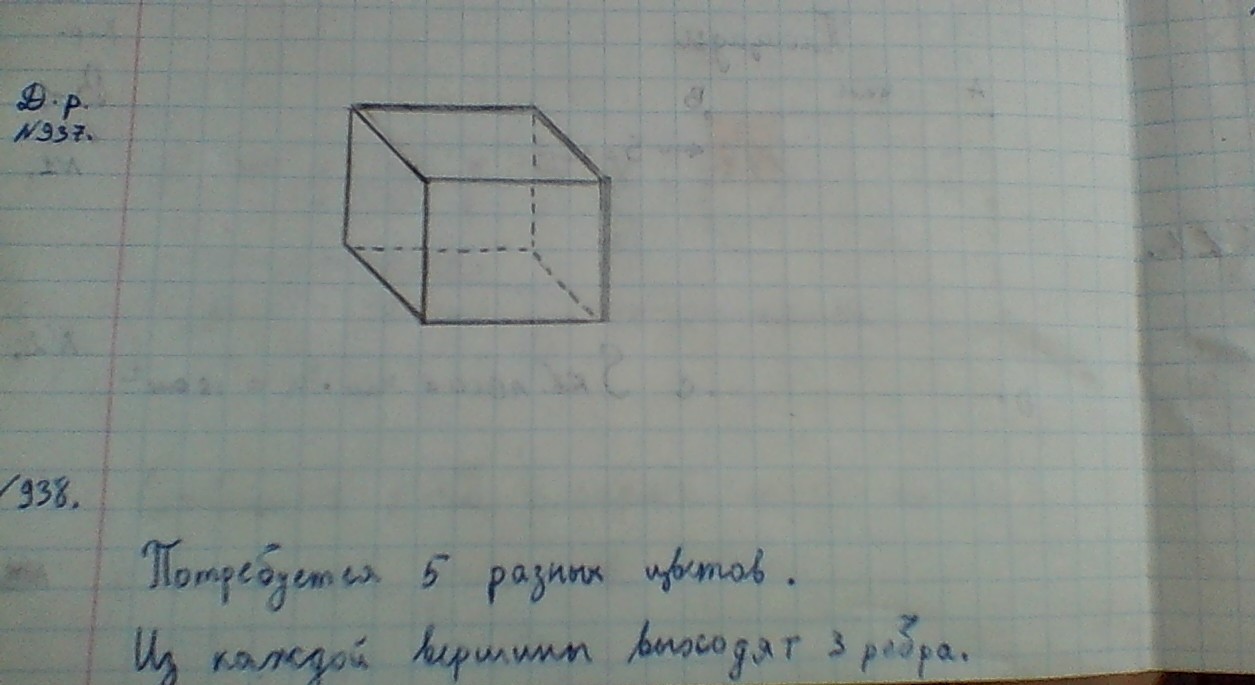 Д.р.
№937.
938.
Потребуется 5 разных цветов.
Из каждой вершины выходят 3 ребра.